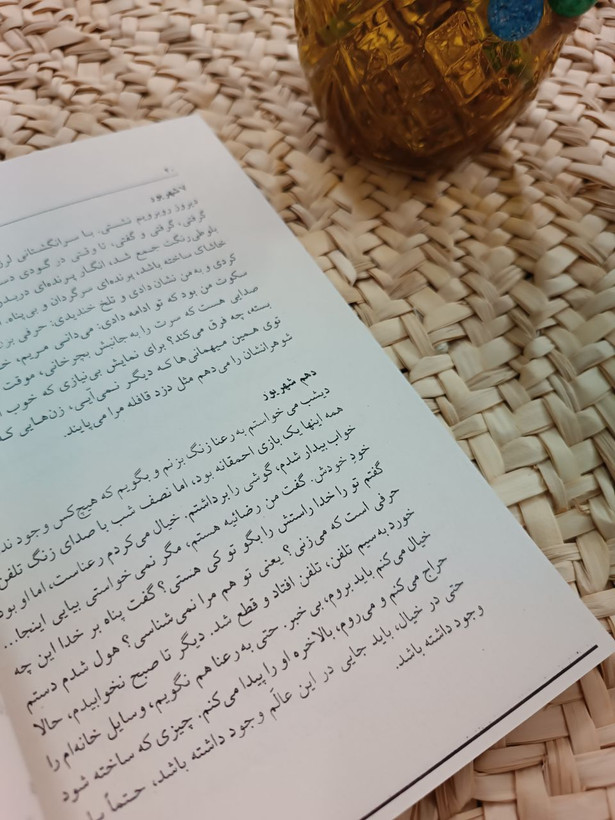 ۲۰
۷ شهریور
دیروز روبرویم نشستی. با سرانگشتانی
گرفتی، گرفتی و گفتی، تا وقتی در گودی
بلوطی‌رنگت جمع شد، انگار پرنده‌ای
خاشاک ساخته باشد، پرنده‌ای سرگردان و بی‌پناه.
کردی و به من نشان دادی و تلخ خندیدی: حرفی
سکوت من بود که تو ادامه دادی: می‌دانی مریم،
صدایی هست که سرت را به جانبش بچرخانی، موقت
بسته، چه فرق می‌کند؟ برای نمایش بی‌نیازی که خوب
توی همین میهمانی‌ها که دیگر نمی‌آیی، زن‌هایی
شوهرانشان را می‌دهم مثل دزد قافله مرا می‌پایند.
دهم شهریور
دیشب می‌خواستم به رعنا زنگ بزنم و بگویم که هیچ‌کس وجود
همه اینها یک بازی احمقانه بود، اما نصف شب با صدای زنگ تلفن
خواب بیدار شدم، گوشی را برداشتم. خیال می‌کردم رعناست، اما او بود
خودِ خودش. گفت من رضائیه هستم، مگر نمی‌خواستی بیایی اینجا...
گفتم تو را خدا راستش را بگو تو کی هستی؟ گفت پناه بر خدا این چه
حرفی است که می‌زنی؟ یعنی تو هم مرا نمی‌شناسی؟ هول شدم دستم
خورد به سیم تلفن، تلفن افتاد و قطع شد. دیگر تا صبح نخوابیدم، حالا
خیال می‌کنم باید بروم، بی خبر. حتی به رعنا هم نگویم، وسایل خانه‌ام را
حراج می‌کنم و می‌روم، بالاخره او را پیدا می‌کنم. چیزی که ساخته شود
حتی در خیال، باید جایی در این عالَم وجود داشته باشد، حتماً
وجود داشته باشد.